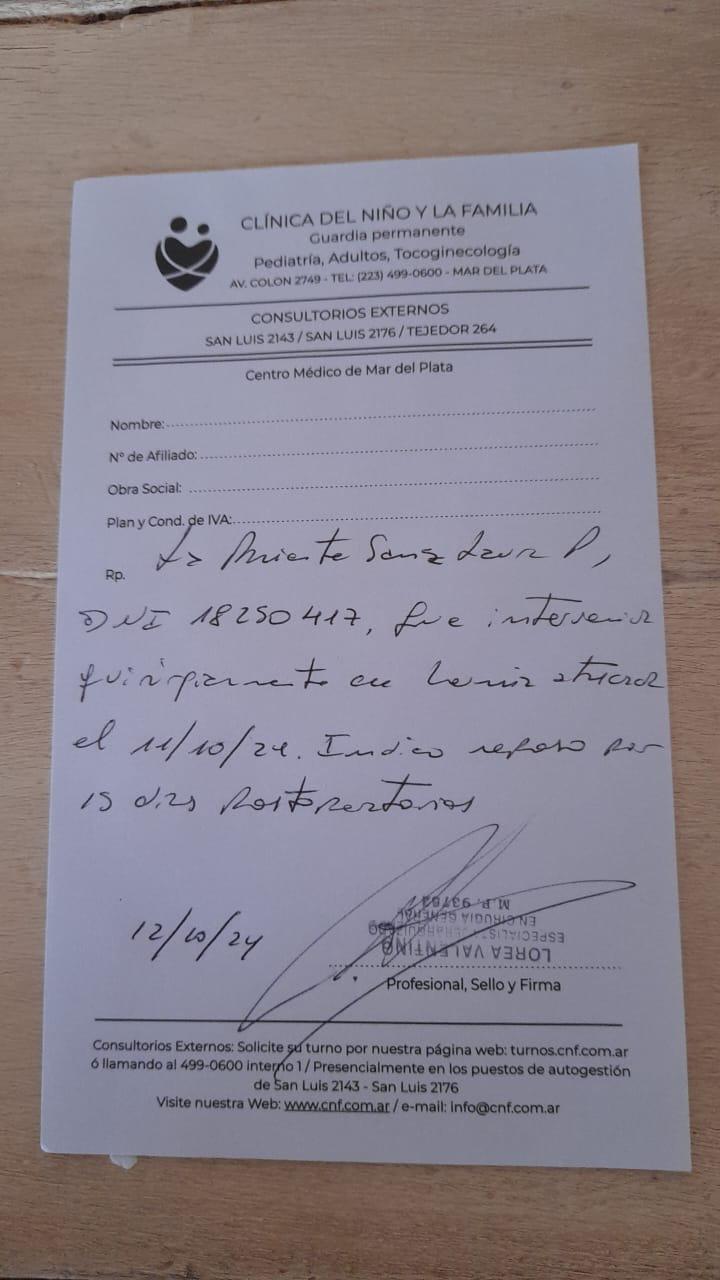 CLÍNICA DEL NIÑO Y LA FAMILIA
Guardia permanente
Pediatría, Adultos, Tocoginecología
AV. COLON 2749 - TEL: (223) 499-0600 - MAR DEL PLATA
CONSULTORIOS EXTERNOS
SAN LUIS 2143 / SAN LUIS 2176 / TEJEDOR 264
Centro Médico de Mar del Plata
Nombre:
Nº de Afiliado:
Obra Social:
Plan y Cond. de IVA:
Rp. La Paciente Sanz Laura P,
DNI 18250417, fue intervenida
quirúrgicamente de hernia
el 11/10/24. Indico reposo por
15 días postoperatorios
12/10/24
LOREA VALENTINO
ESPECIALISTA JERARQUIZADO
EN CIRUGIA GENERAL
M.P. 93763
Profesional, Sello y Firma
Consultorios Externos: Solicite su turno por nuestra página web: turnos.cnf.com.ar
ó llamando al 499-0600 interno 1 / Presencialmente en los puestos de autogestión
de San Luis 2143 - San Luis 2176
Visite nuestra Web: www.cnf.com.ar / e-mail: info@cnf.com.ar